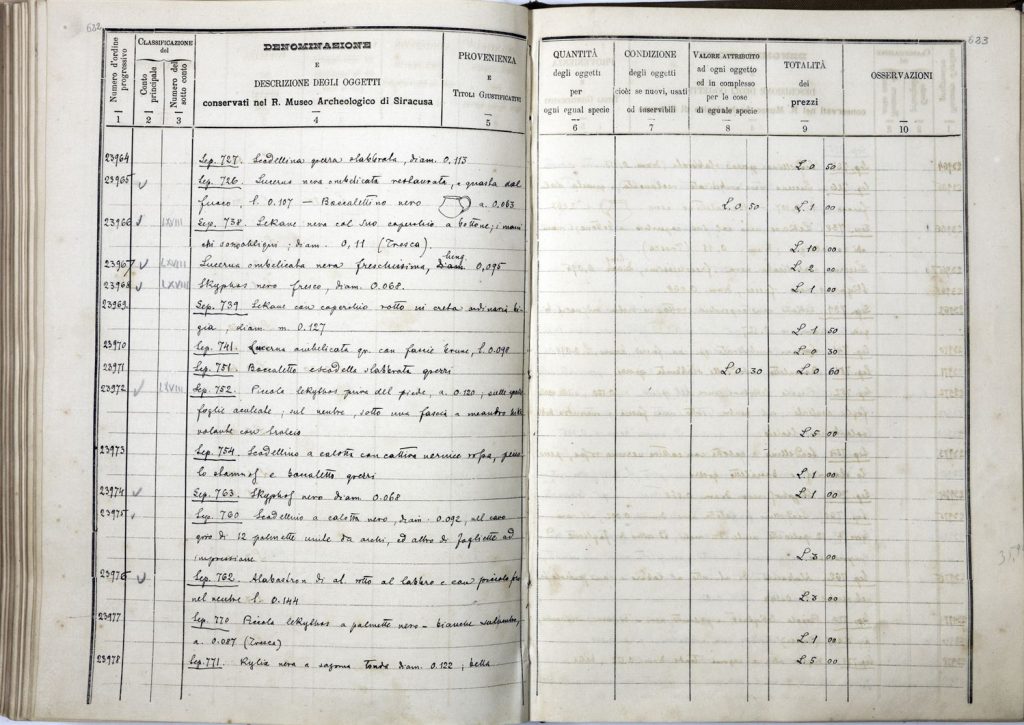 622
Numero d'ordine progressivo
CLASSIFICAZIONE
del
Conto principale
Numero del sotto conto
DENOMINAZIONE
E
DESCRIZIONE DEGLI OGGETTI
conservati nel R. Museo Archeologico di Siracusa
PROVENIENZA
E
TITOLI GIUSTIFICATIVI
1 2 3 4 5
23964 Sep. 727. Scodellina grezza slabbrata, diam. 0.113
23965 Sep. 726. Lucerna nera ombelicata restaurata, e guasta dal
fuoco, l. 0.107 — Boccalettino nero a. 0.063
23966 LXVIII Sep. 738. Lekane nera col suo coperchio a bottone; i mani
chi sono obliqui; diam. 0,11 (Tresca).
23967 LXVIII Lucerna ombelicata nera freschissima, diam. lung. 0,095
23968 LXVIII Skyphos nero fresco, diam. 0.068.
23969 Sep. 739. Lekane con coperchio rotto in creta ordinaria bi
gia, diam. m. 0.127
23970 Sep. 741. Lucerna ombelicata gr. con fascie brune, l. 0.098
23971 Sep. 751. Boccaletto e scodella slabbrata grezzi
23972 LXVIII Sep. 752. Piccola lekythos priva del piede, a. 0.120; sulle spalle
foglie aculeate; sul ventre, sotto una fascia a meandro
volante con
23973 Sep. 754. Scodellino a calotta con cattiva vernice rossa,
lo e boccaletto grezzi
23974 Sep. 763. Skyphos nero diam. 0.068
23975 Sep. 760 Scodellino a calotta nero, diam. 0.092, nel cavo
giro di 12 palmette unite da archi, ed altro di fogliette ad
impressione
23976 Sep. 762. Alabastron di al. rotto al labbro e con piccolo
nel ventre l. 0.144
23977 Sep. 770 Piccola lekythos a palmette nero - bianche
a. 0.087 (Tresca)
23978 Sep. 771. Kylix nera a sagoma tonda diam. 0.122; bella
623
QUANTITÀ
degli oggetti
per
ogni egual specie
CONDIZIONE
degli oggetti
cioè: se nuovi, usati
od inservibili
VALORE ATTRIBUITO
ad ogni oggetto
ed in complesso
per le cose
di eguale specie
TOTALITÀ
dei
prezzi
OSSERVAZIONI
6 7 8 9 10
L. 0 50
L. 0 50 L. 1 00
L. 10 00
L. 2 00
L. 1 00
L. 1 50
L. 0 30
L. 0 30 L. 0 60
L. 5 00
L. 1 00
L. 1 00
L. 3 00
L. 3 00
L. 1 00
L. 5 00